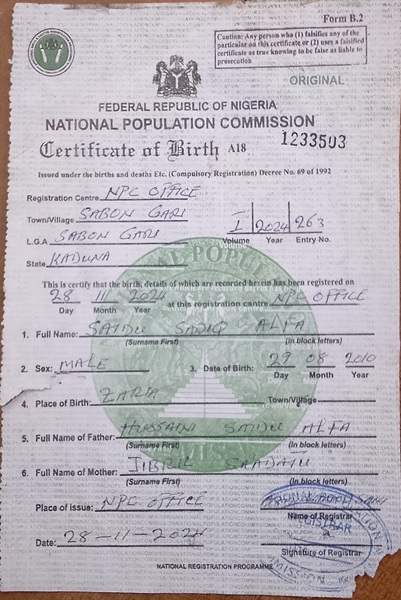 Form B.2
Caution: Any person who (1) falsifies any of the
particular on this certificate or (2) uses a falsified
certificate as true knowing to be false as liable to
prosecution
ORIGINAL
FEDERAL REPUBLIC OF NIGERIA
NATIONAL POPULATION COMMISSION
Certificate of Birth A18 1233503
Issued under the births and deaths Etc. (Compulsory Registration) Decree No. 69 of 1992
Registration Centre NPC OFFICE
Town/Village SABON GARI I 2024 263
L.G.A SABON GARI Volume Year Entry No.
State KADUNA
This is certify that the birth, details of which are recorded herein has been registered on
28 11 2024 at this registration centre NPC OFFICE
Day Month Year
1. Full Name: SAIDU SADIQ ALFA
(Surname First) (In block letters)
2. Sex: MALE 3. Date of Birth: 29 08 2010
Day Month Year
4. Place of Birth: ZARIA Town/Village
5. Full Name of Father: HUSSAINI SAIDU ALFA
(Surname First) (In block letters)
6. Full Name of Mother: JIBRIL SAADATU
(Surname First) (In block letters)
Place of issue: NPC OFFICE
Name of Registrar
Date: 28-11-2024
Signature of Registrar
NATIONAL REGISTRATION PROGRAMME